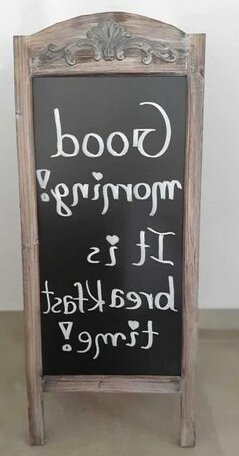 Good
morning!
It is
breakfast
time!